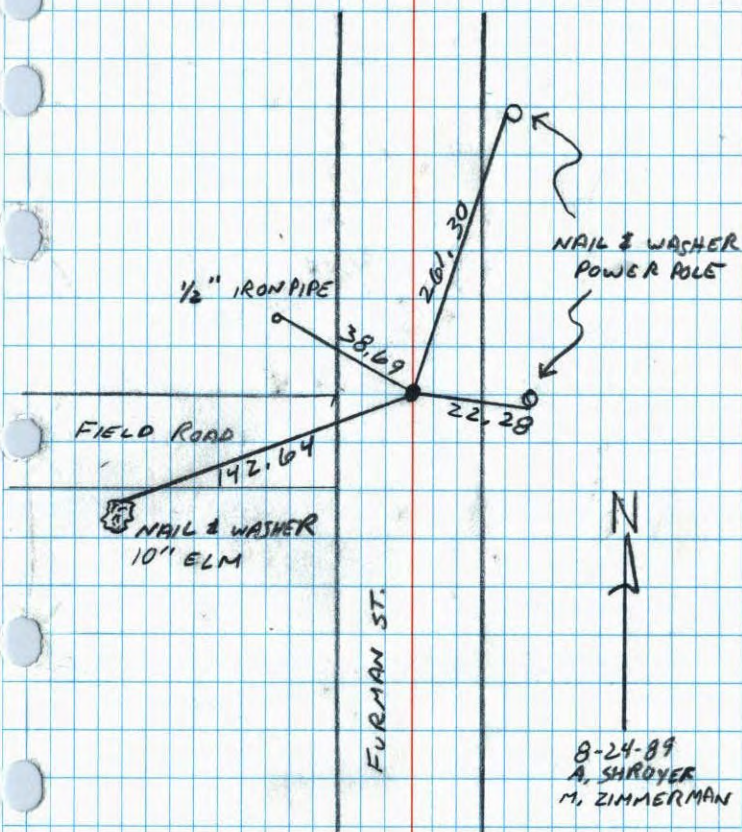 261.30
NAIL & WASHER
POWER POLE
1/2" IRON PIPE
38.69
22.28
FIELD ROAD
142.64
NAIL & WASHER
10" ELM
N
FURMAN ST.
8-24-89
A. SHROYER
M. ZIMMERMAN